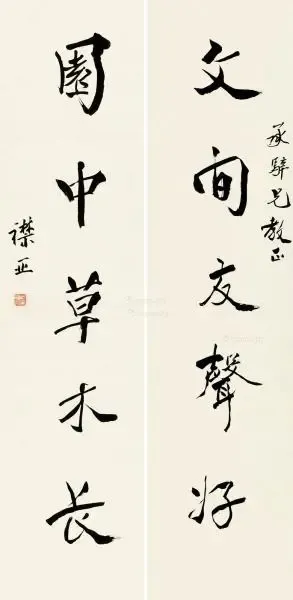 文間友聲好
承兄教正
園中草木長
襟亚